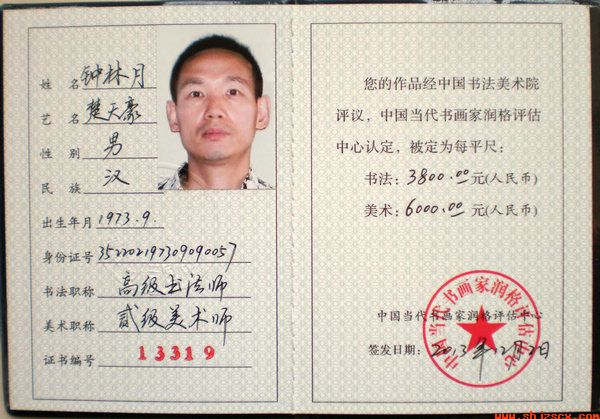 姓 名 钟林月
艺 名 楚天豪
性 别 男
民 族 汉
出生年月 1973.9.
身份证号 352202197309090057
书法职称 高级书法师
美术职称 贰级美术师
证书编号 13319
您的作品经中国书法美术院
评议，中国当代书画家润格评估
中心认定，被定为每平尺：
书法：3800.00元(人民币)
美术：6000.00元(人民币)
中国当代书画家润格评估中心
中国当代书画家润格评估中心
签发日期：2013年12月2日
www.shjzscx.com